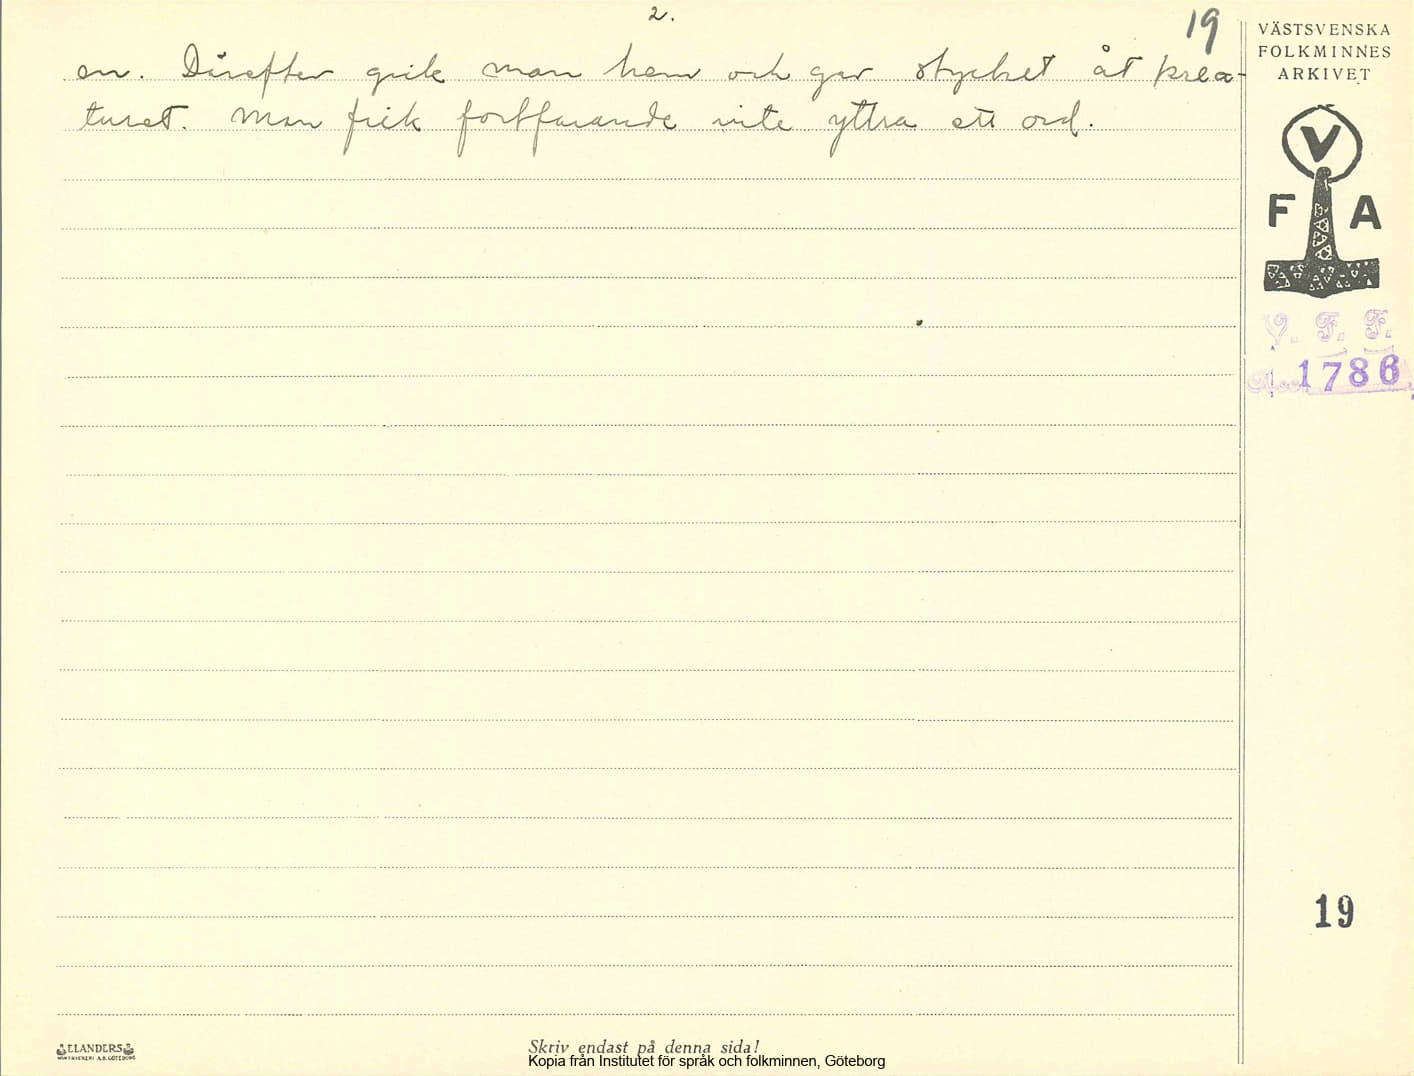 2.
19
en. Därefter gick man hem och gav stycket åt krea-
turet. Man fick fortfarande inte yttra ett ord.
VÄSTSVENSKA
FOLKMINNES
ARKIVET
V
F A
V. F. F.
1786
19
ELANDERS
Skriv endast på denna sida!
Kopia från Institutet för språk och folkminnen, Göteborg